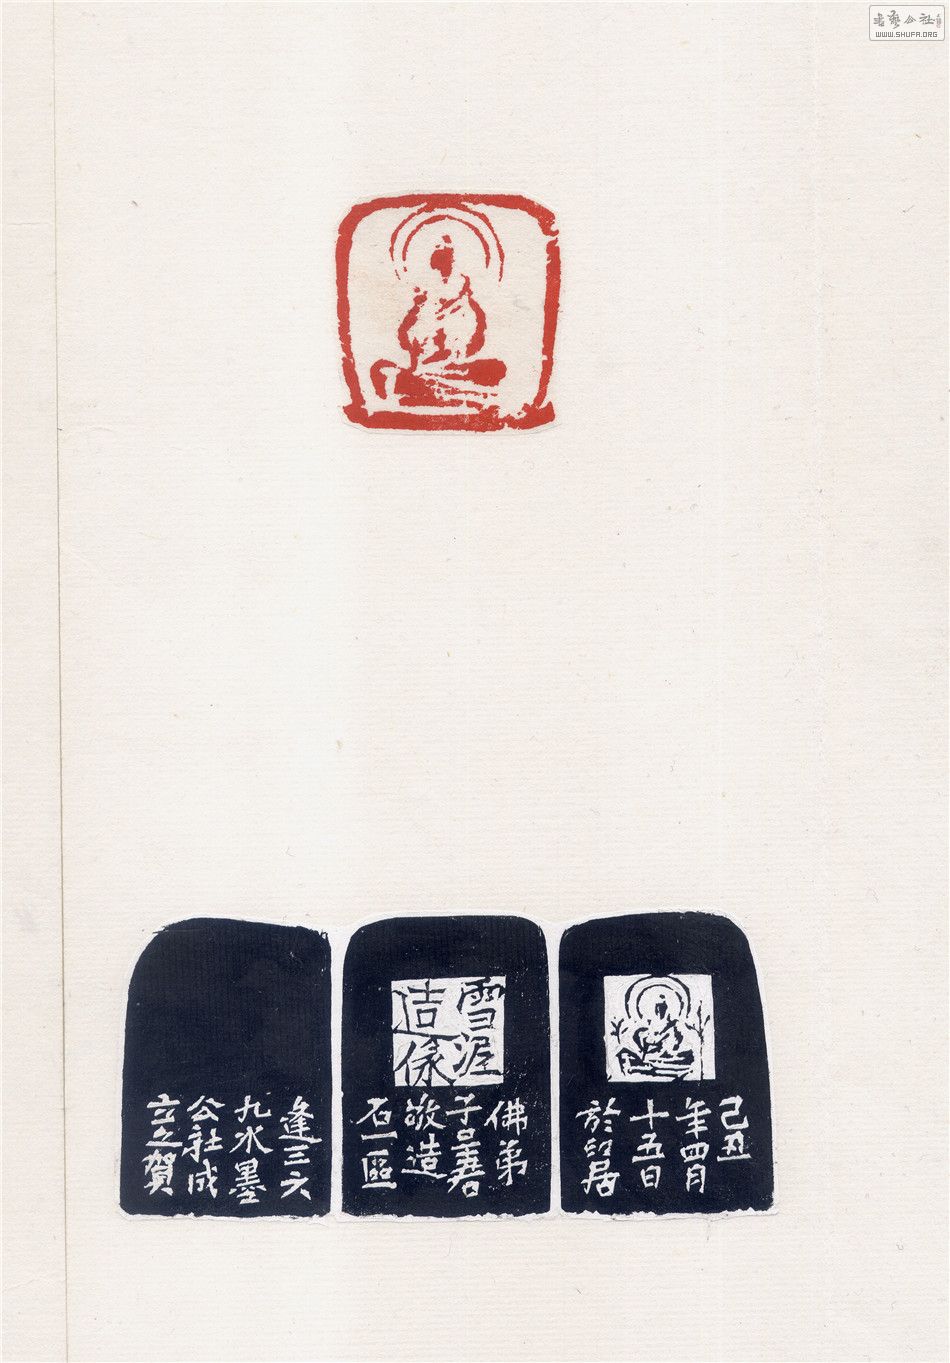 书艺公社
WWW.SHUFA.ORG
己丑
年四月
十五日
於印居
雪渥
造像
佛弟
子呈善
敬造
石一區
逢三六
九水墨
公社成
立之賀